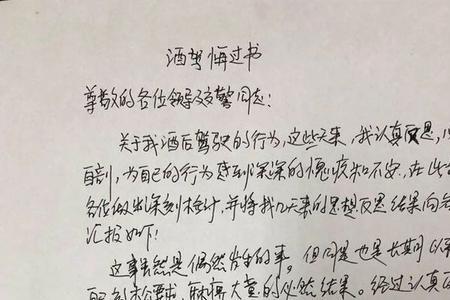 酒驾悔过书
尊敬的各位领导及交警同志:
关于我酒后驾驶的行为,这些天来,我认真反思,
自剖,为自己的行为感到深深的愧疚和不安,在此
各位做出深刻检讨,并将我几天来的思想反思结果向
汇报如下:
这事虽然是偶然发生的事,但同是也是长期以来
麻痹大意的必然结果。经过认真